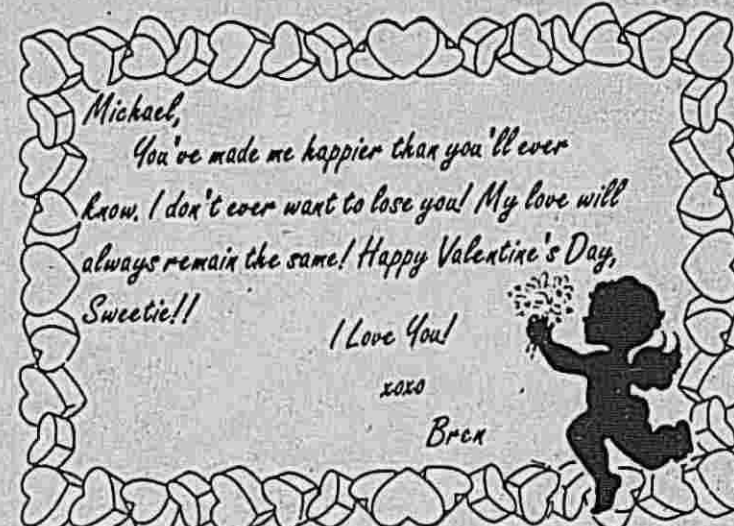 Michael,
You've made me happier than you'll ever
know. I don't ever want to lose you! My love will
always remain the same! Happy Valentine's Day,
Sweetie!!
I Love You!
xoxo
Bren